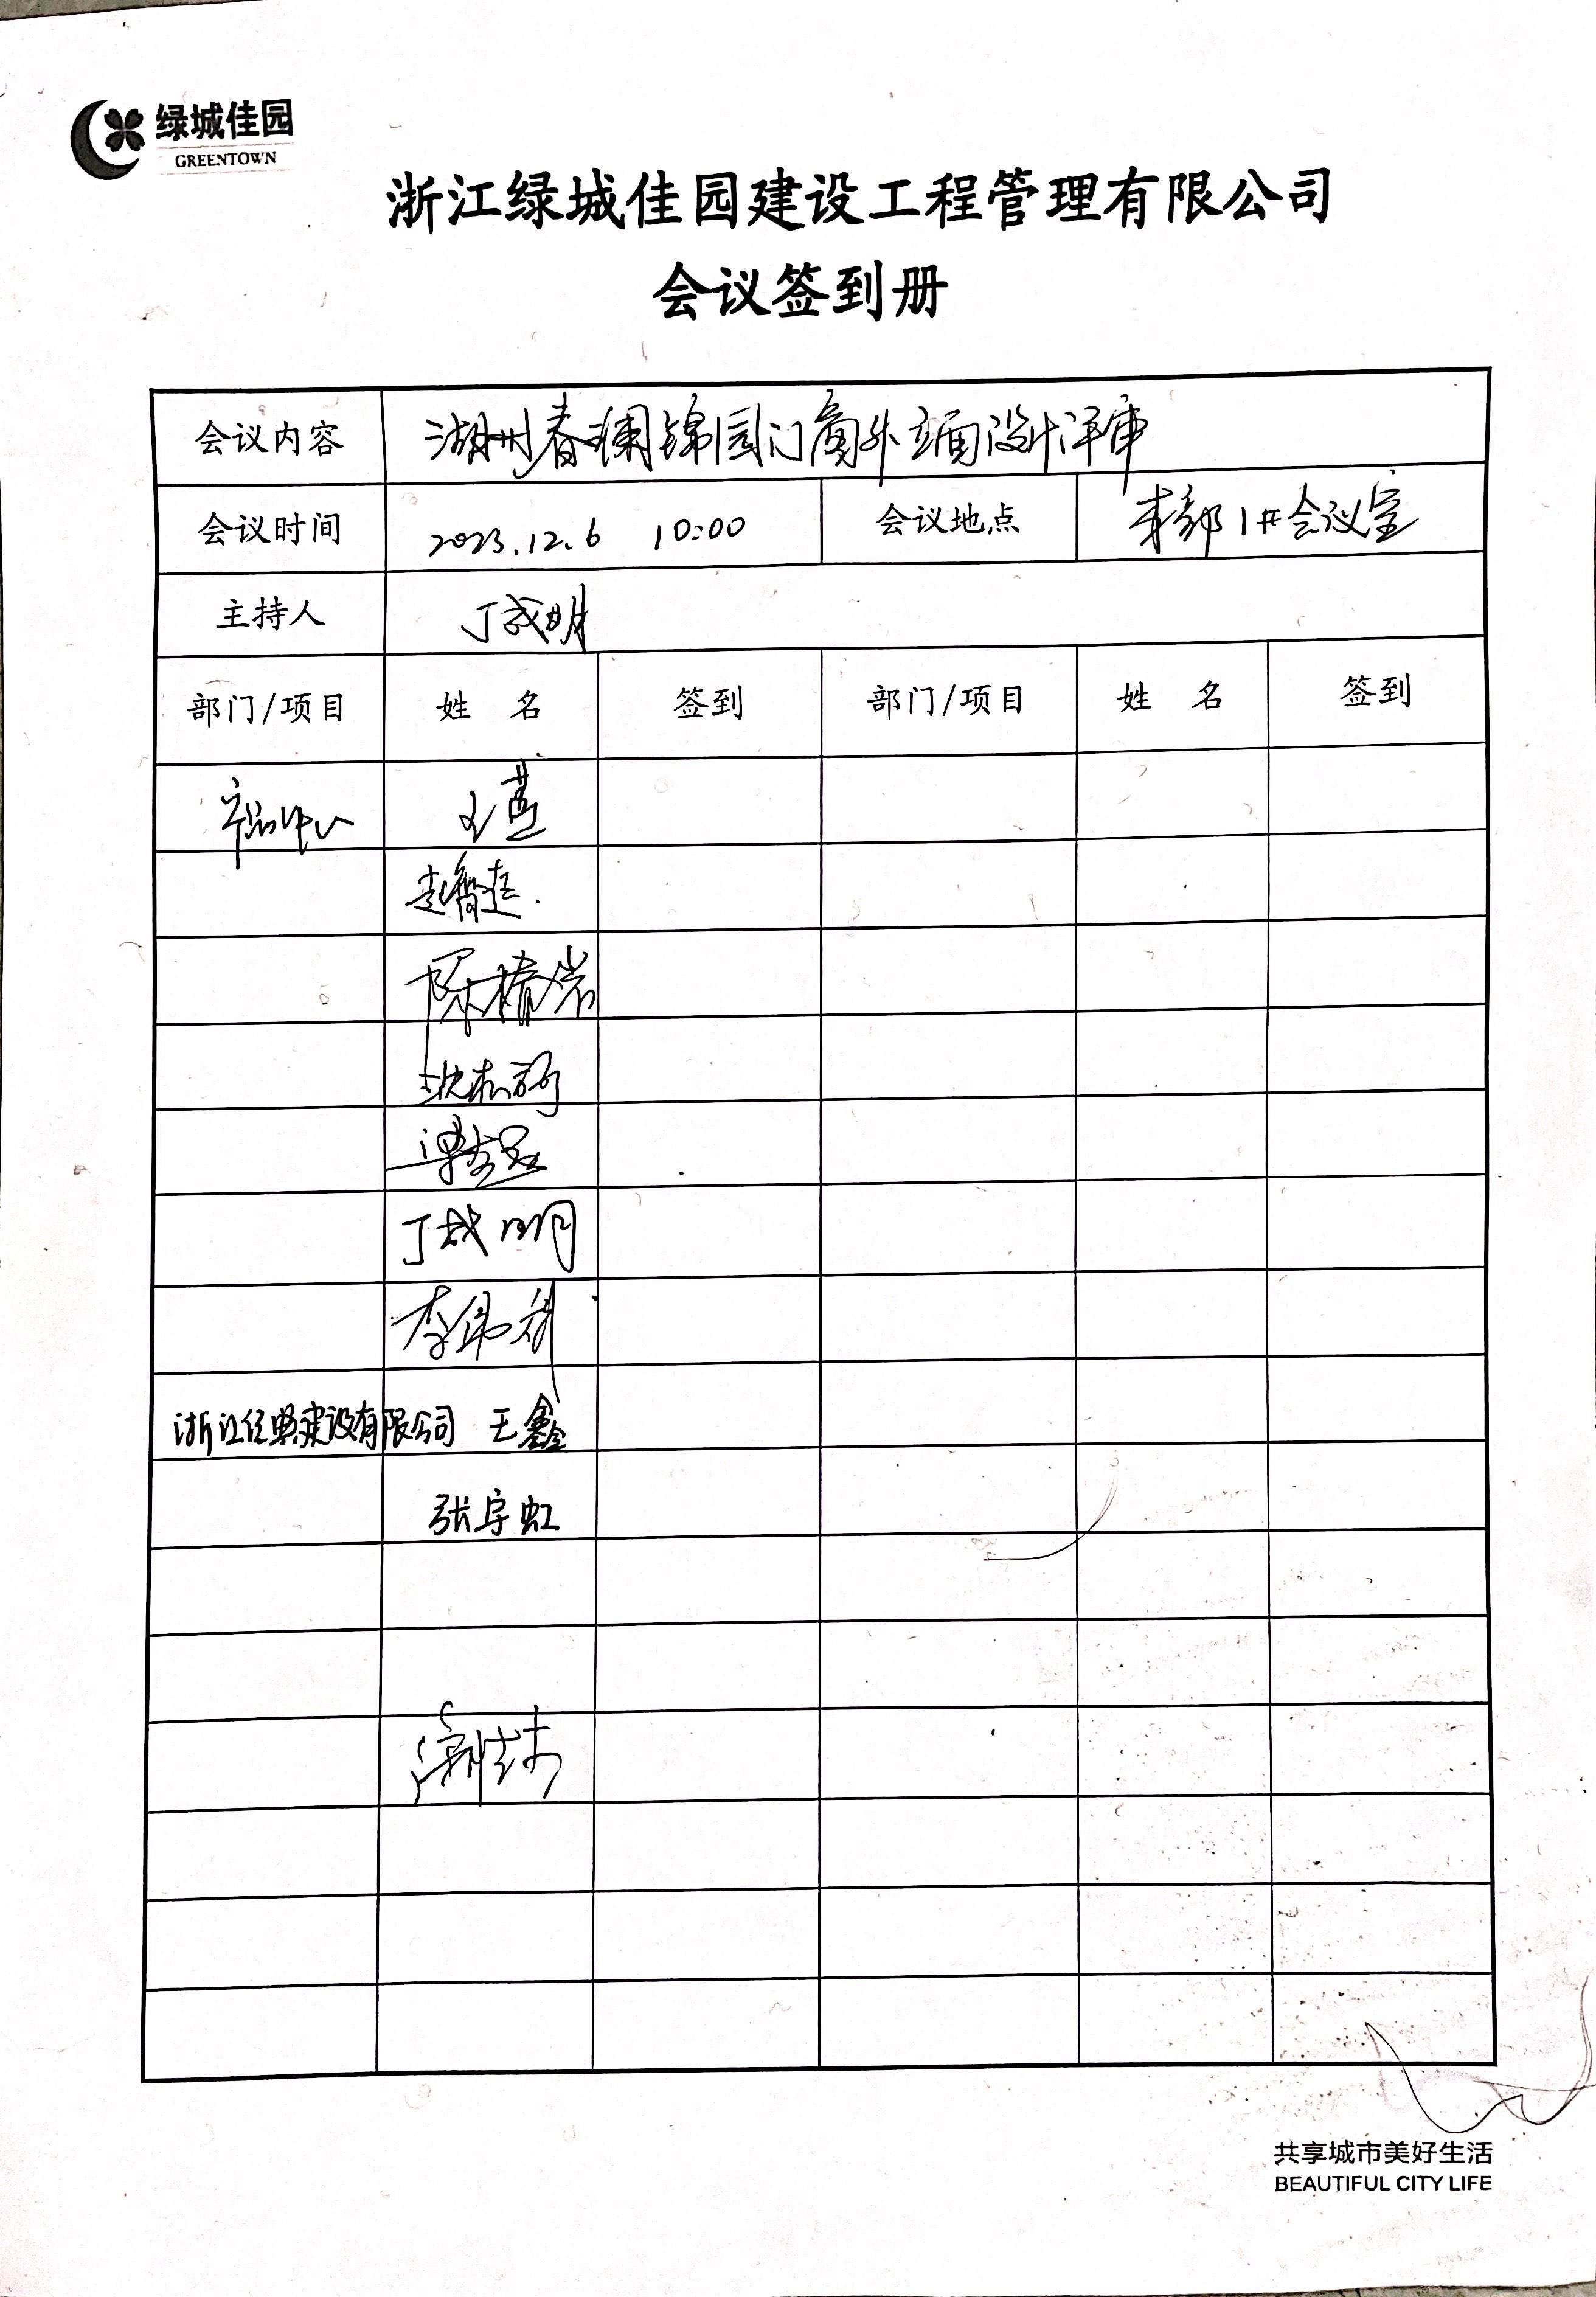 绿城佳园
GREENTOWN
浙江绿城佳园建设工程管理有限公司
会议签到册
会议内容 湖州春澜锦园门窗外立面设计评审
会议时间 2023.12.6 10:00 会议地点 本部1#会议室
主持人 丁成明
部门/项目 姓 名 签到 部门/项目 姓 名 签到
产品中心 王
赵
陈椿岩
沈
梁
丁成明
李伟
浙江经典建设有限公司 王鑫
张宇虹
共享城市美好生活
BEAUTIFUL CITY LIFE